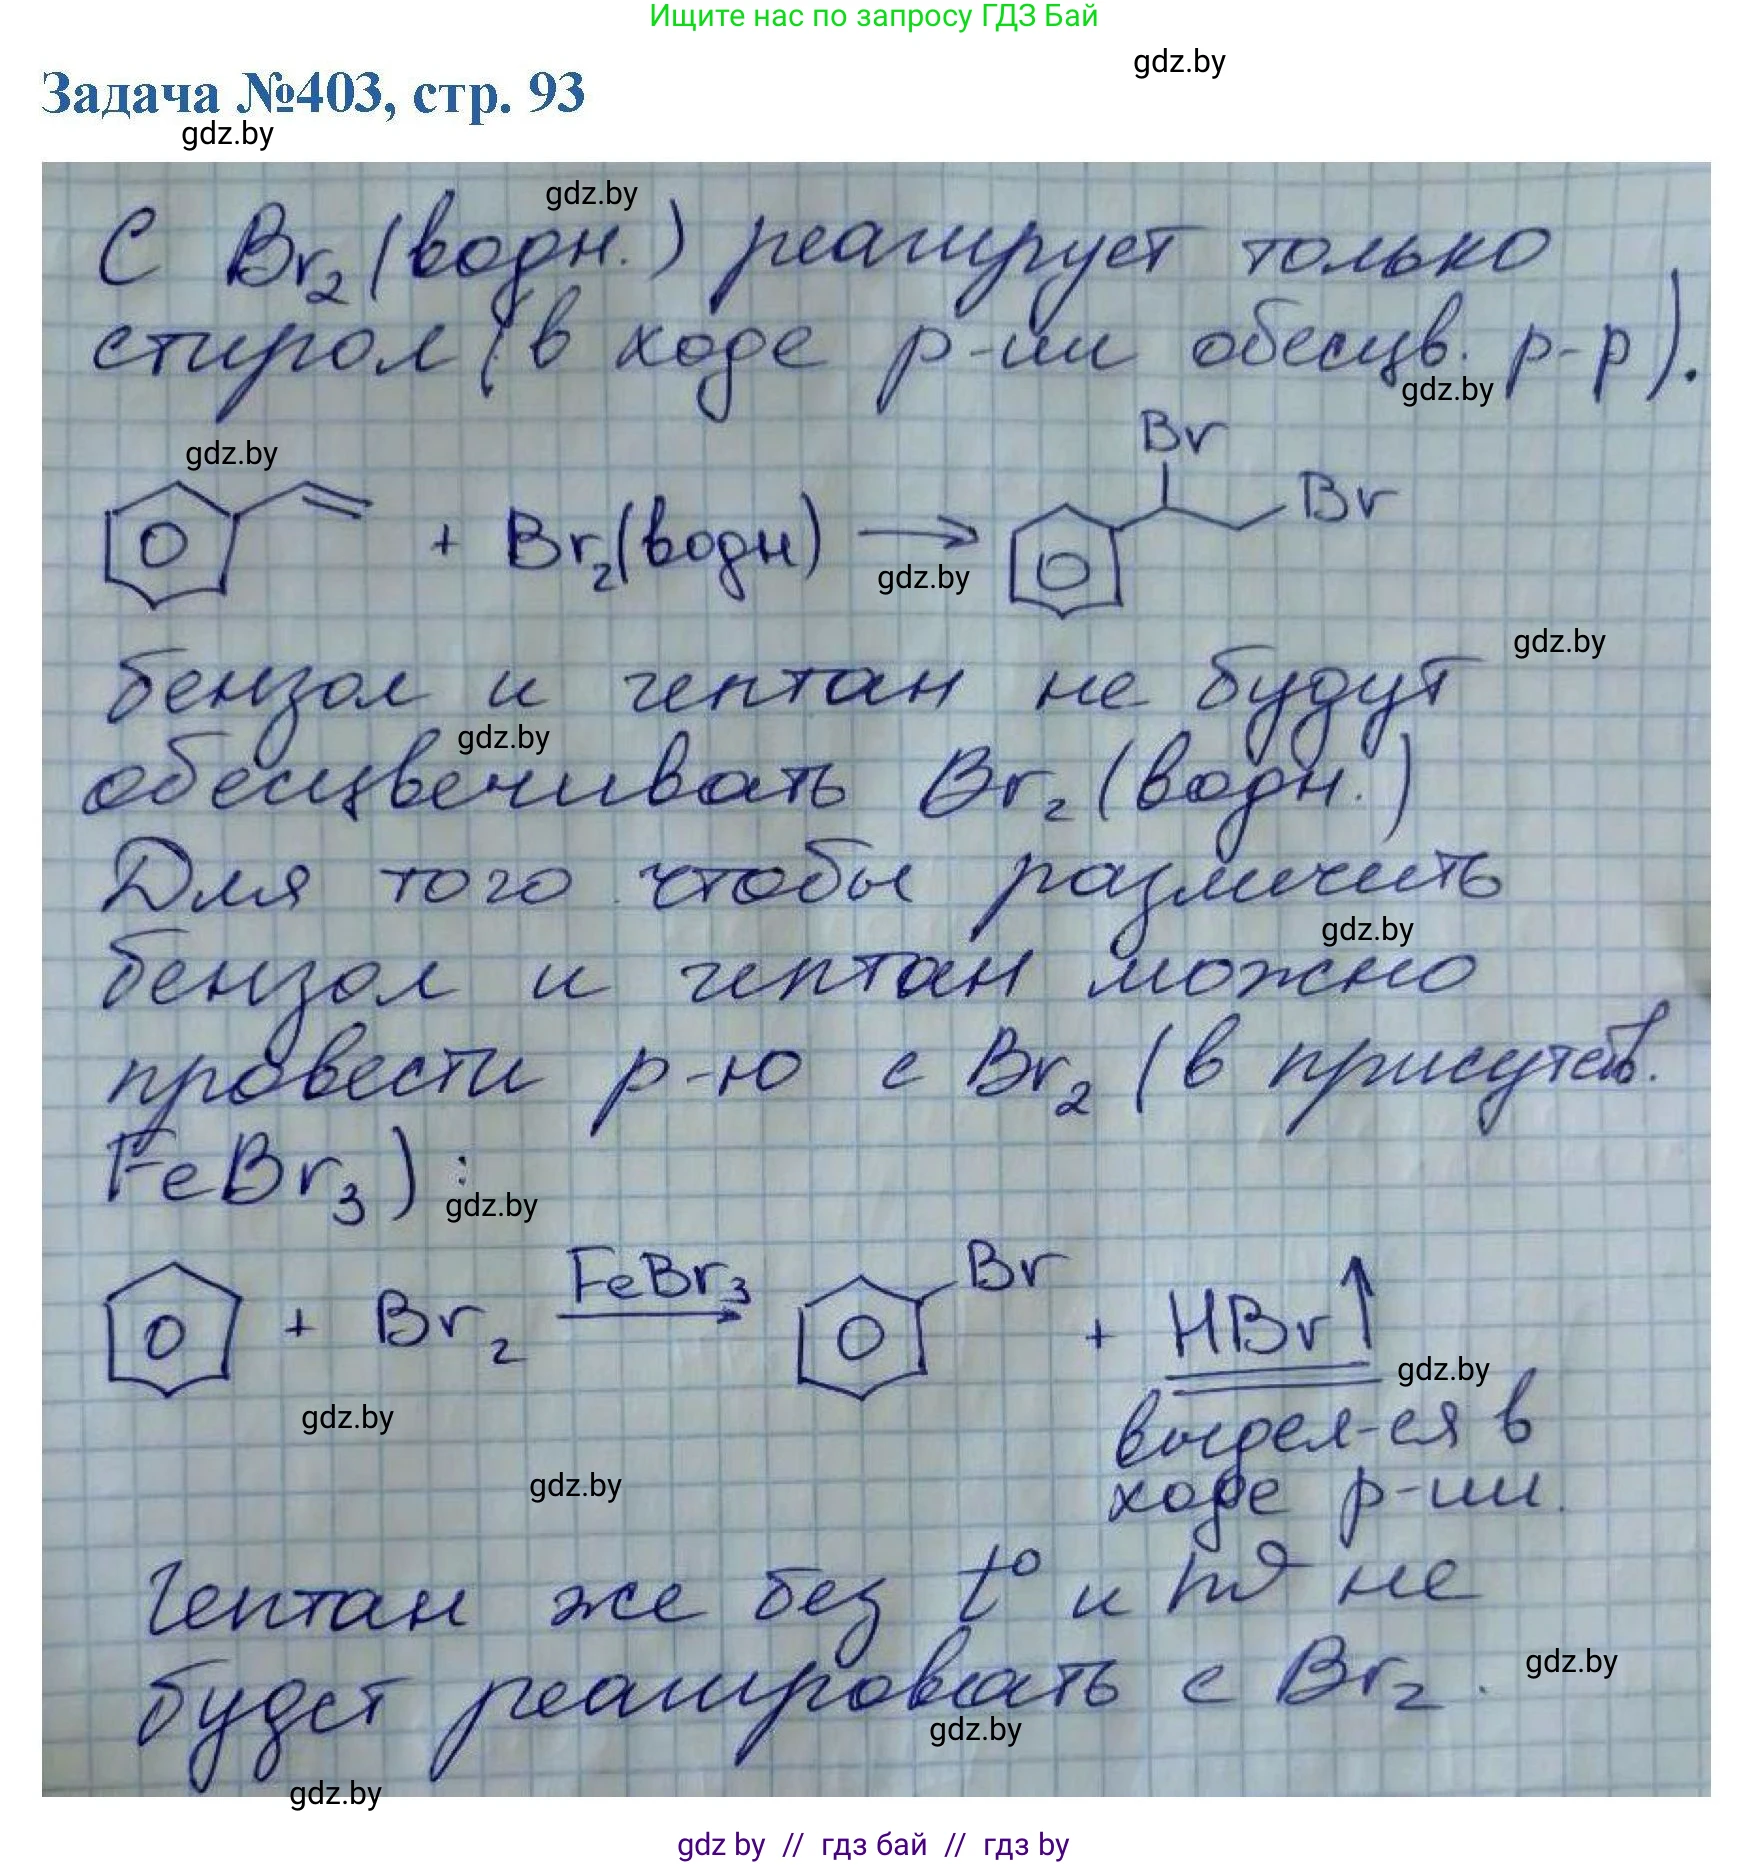 Ищите нас по запросу ГДЗ Бай
gdz.by
Задача №403, стр. 93
gdz.by
gdz.by
С Br2 (водн.) реагирует только
стирол (в ходе р-ии обесцв. р-р).
gdz.by
gdz.by
Br
Br
+ Br2(водн) →
gdz.by
gdz.by
бензол и гептан не будут
gdz.by
обесцвечивать Br2 (водн.)
Для того чтобы различить
gdz.by
бензол и гептан можно
провести р-ю с Br2 (в присутств.
FeBr3) :
gdz.by
+ Br2 FeBr3 → Br + HBr↑
gdz.by
gdz.by
выдел-ся в
gdz.by
ходе р-ии.
Гептан же без t° и hν не
будет реагировать с Br2.
gdz.by
gdz.by
gdz.by
gdz by // гдз бай // гдз by